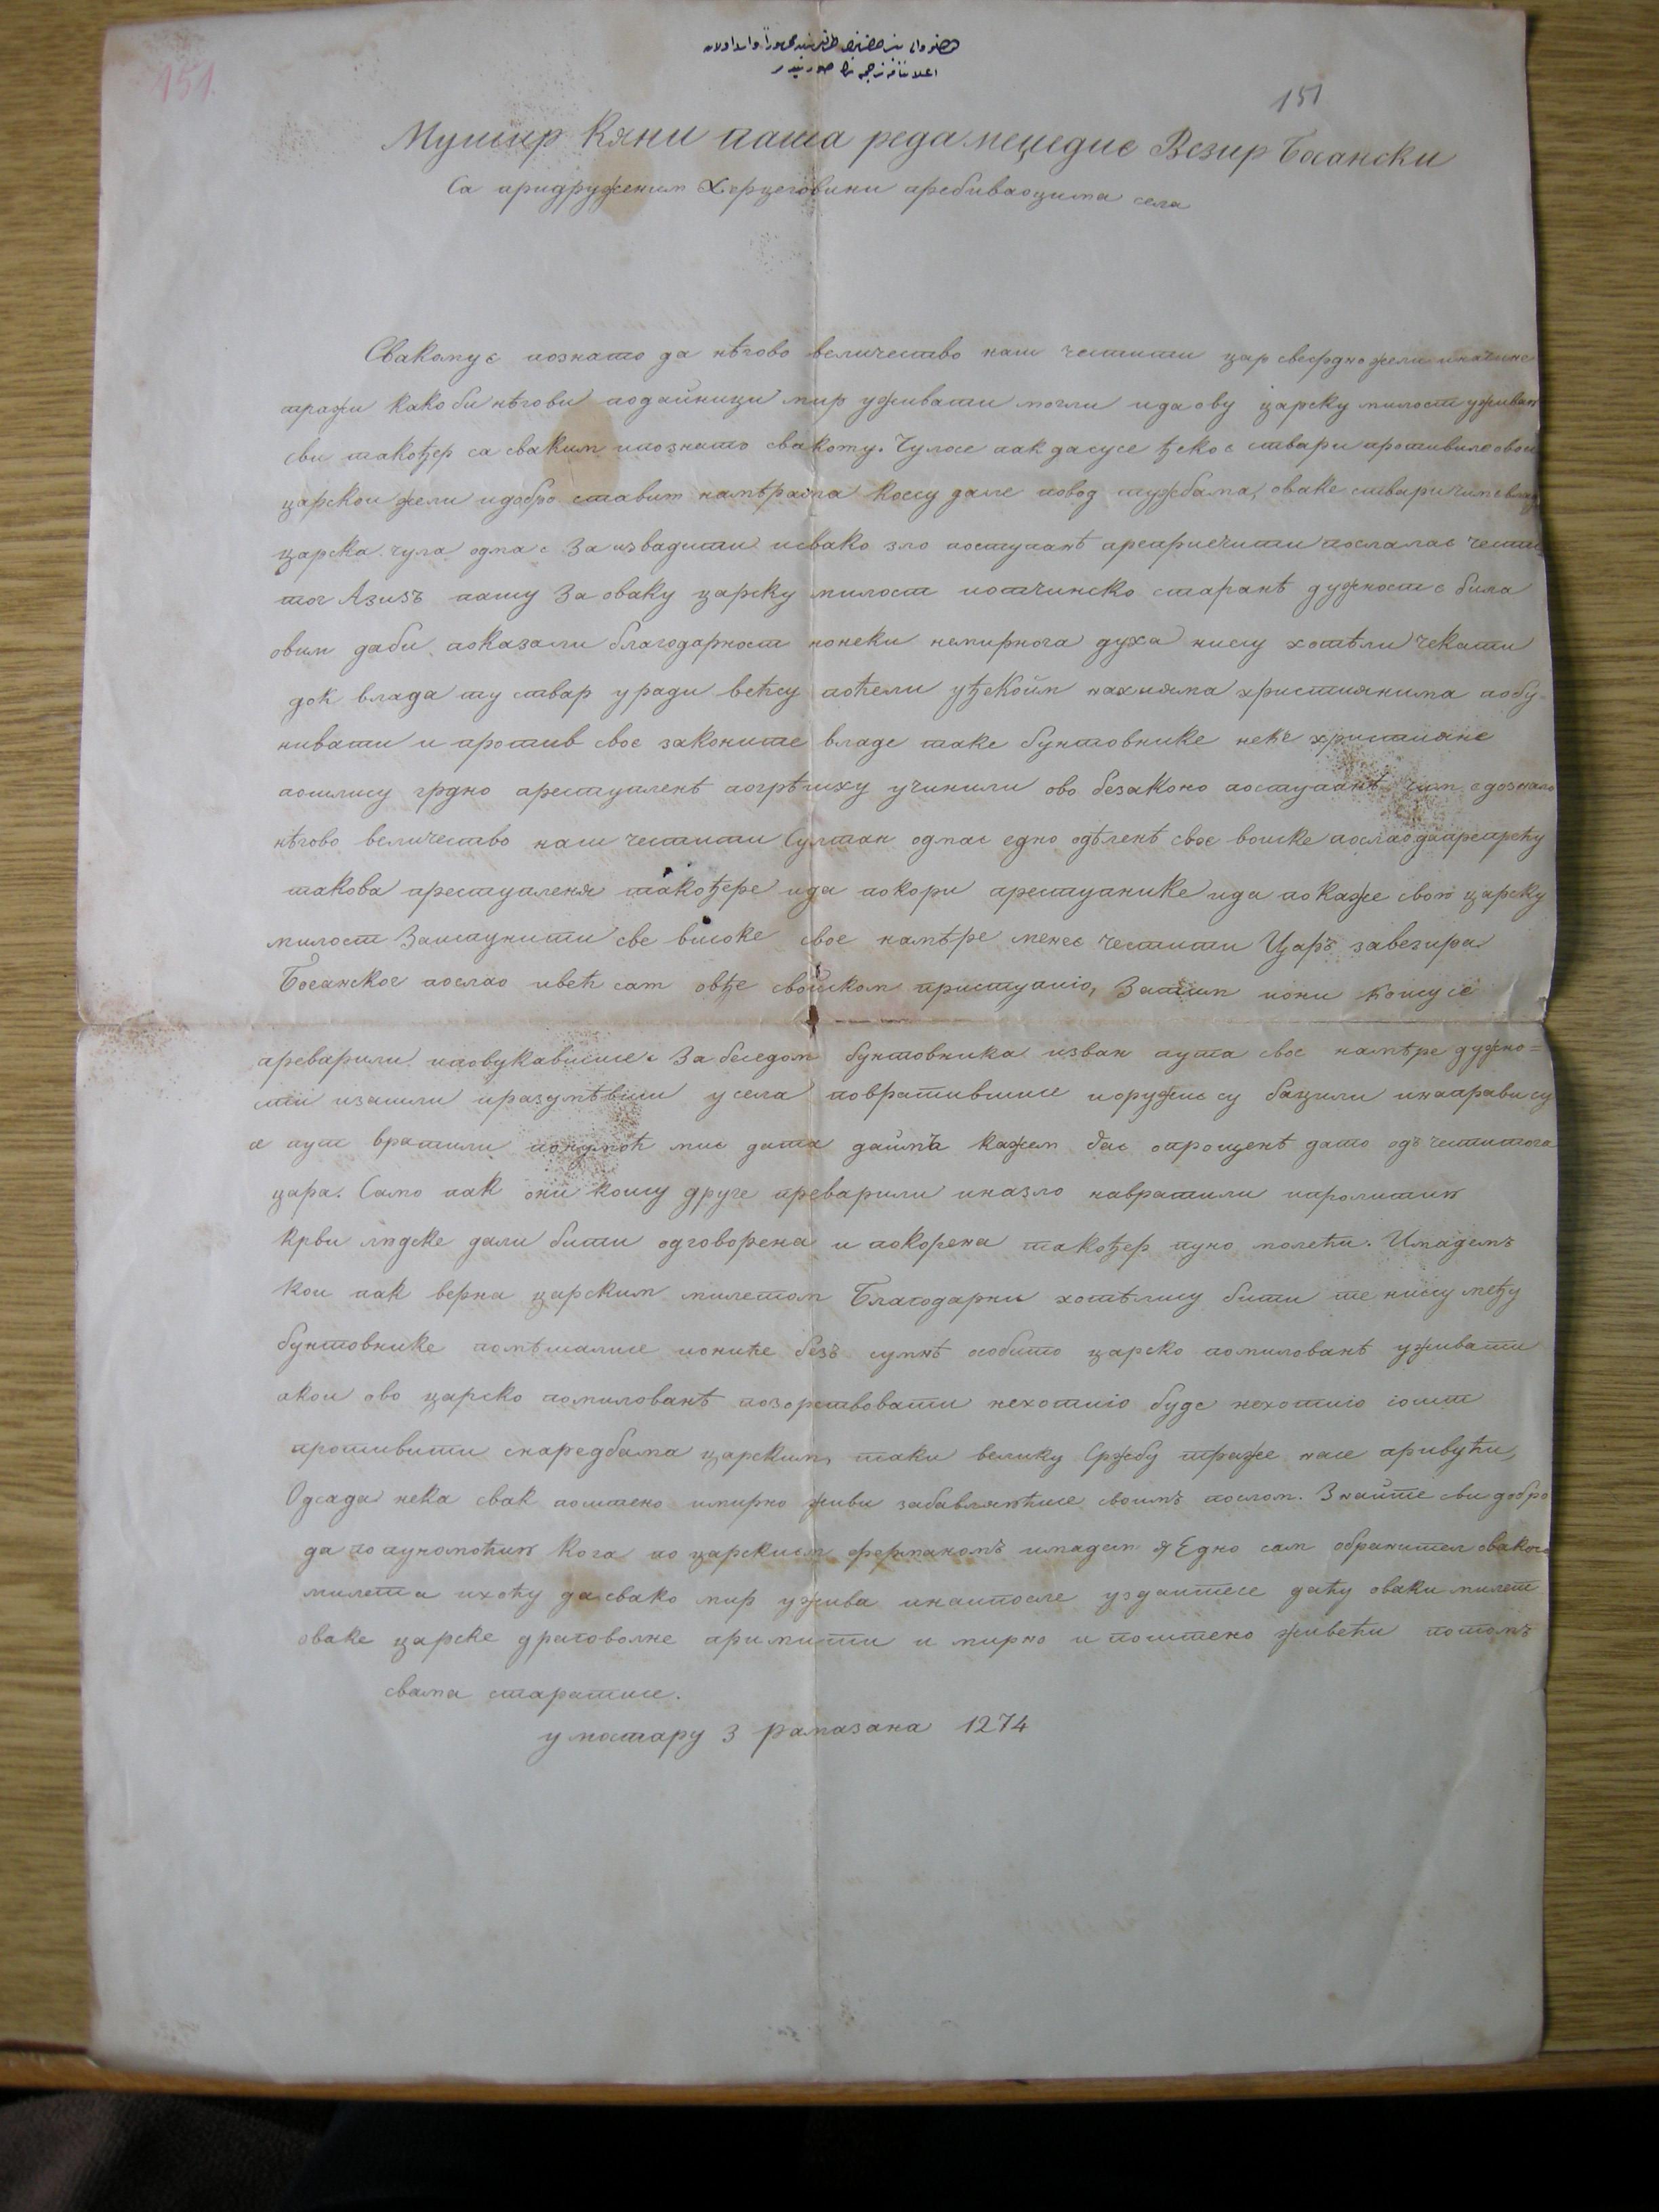 151.
151
Мушир Кяни паша реда меџедие Везир Босански
Са придруженим Херцеговини пребиваоцима села
Свакому є познато да нѣгово величество наш честити цар свеједно жели иначине
тражи како би нѣгови подайници мир уживати могли ида ову царску милост уживаю
сви такођер са сваким ипознато свакому. Чулосе пак дасусе ђекоє ствари противиле овои
царскои жели идобро ставит намѣрама коесу дале повод тужбама, оваке ствари чим є влада
царска чула одма є За извадити исвако зло поступанѣ препричити послалає чести
тог Азизъ пашу За оваку царску милост иотчинско старанѣ дужност є била
овим даби показали благодарност нонеки немирнога духа нису хотѣли чекати
док влада ту ствар уради већсу поћели уђекойм нахияма християнима побу-
нивати и против своє законите владе таке бунтовнике неке християне
пошлису грдно преступленѣ погрѣшку учинили ово безаконо поступанѣ чим є дознало
нѣгово величество наш честити Султан одмає едно одѣленѣ своє воиске послао дапрепрећу
такова преступленя такођере ида покори преступнике ида покаже свою царску
милост Заиступити све високе своє намѣре менеє честити Царъ завезира
Босанског послао ивећ сам овђе своиском приступіо, Затим иони коису се
преварили иповукавшисе За беседом бунтовника изван пута своє намѣре дужно=
сти изашли иразумѣвши у села повратившисе иоружиє су бацили инаправи су
є пут вратили понумоћ миє дата даймъ кажем дає опрощенѣ дато одъ честитога
цара. Само пак они коису друге преварили иназло навратили ипролитию
крви људске дали бити одговорена и покорена такођер пуно молећи. Имадемъ
кои пак верна царским милетом Благодарни хотѣлису бити те нису међу
бунтовнике помѣшалисе иониће безъ сумнѣ особито царско помилованѣ уживати
акои ово царско помилованѣ позорствовати нехотию буде нехотию іошт
противити снаредбама царским, таки велику Сржбу траже насе привући,
Одсада нека свак поштено имирно живи забавляюћисе своимъ послом. Знайте сви добро
да по пуномоћию кога по царскием ферманомъ имадем я Едно сам обранител овакога
милета ихоћу да свако мир ужива инаипосле уздаитесе даћу оваки милет
оваке царске драговолне примити и мирно и поштено живећи потомъ
свама старатисе.
у мостару 3 рамазана 1274